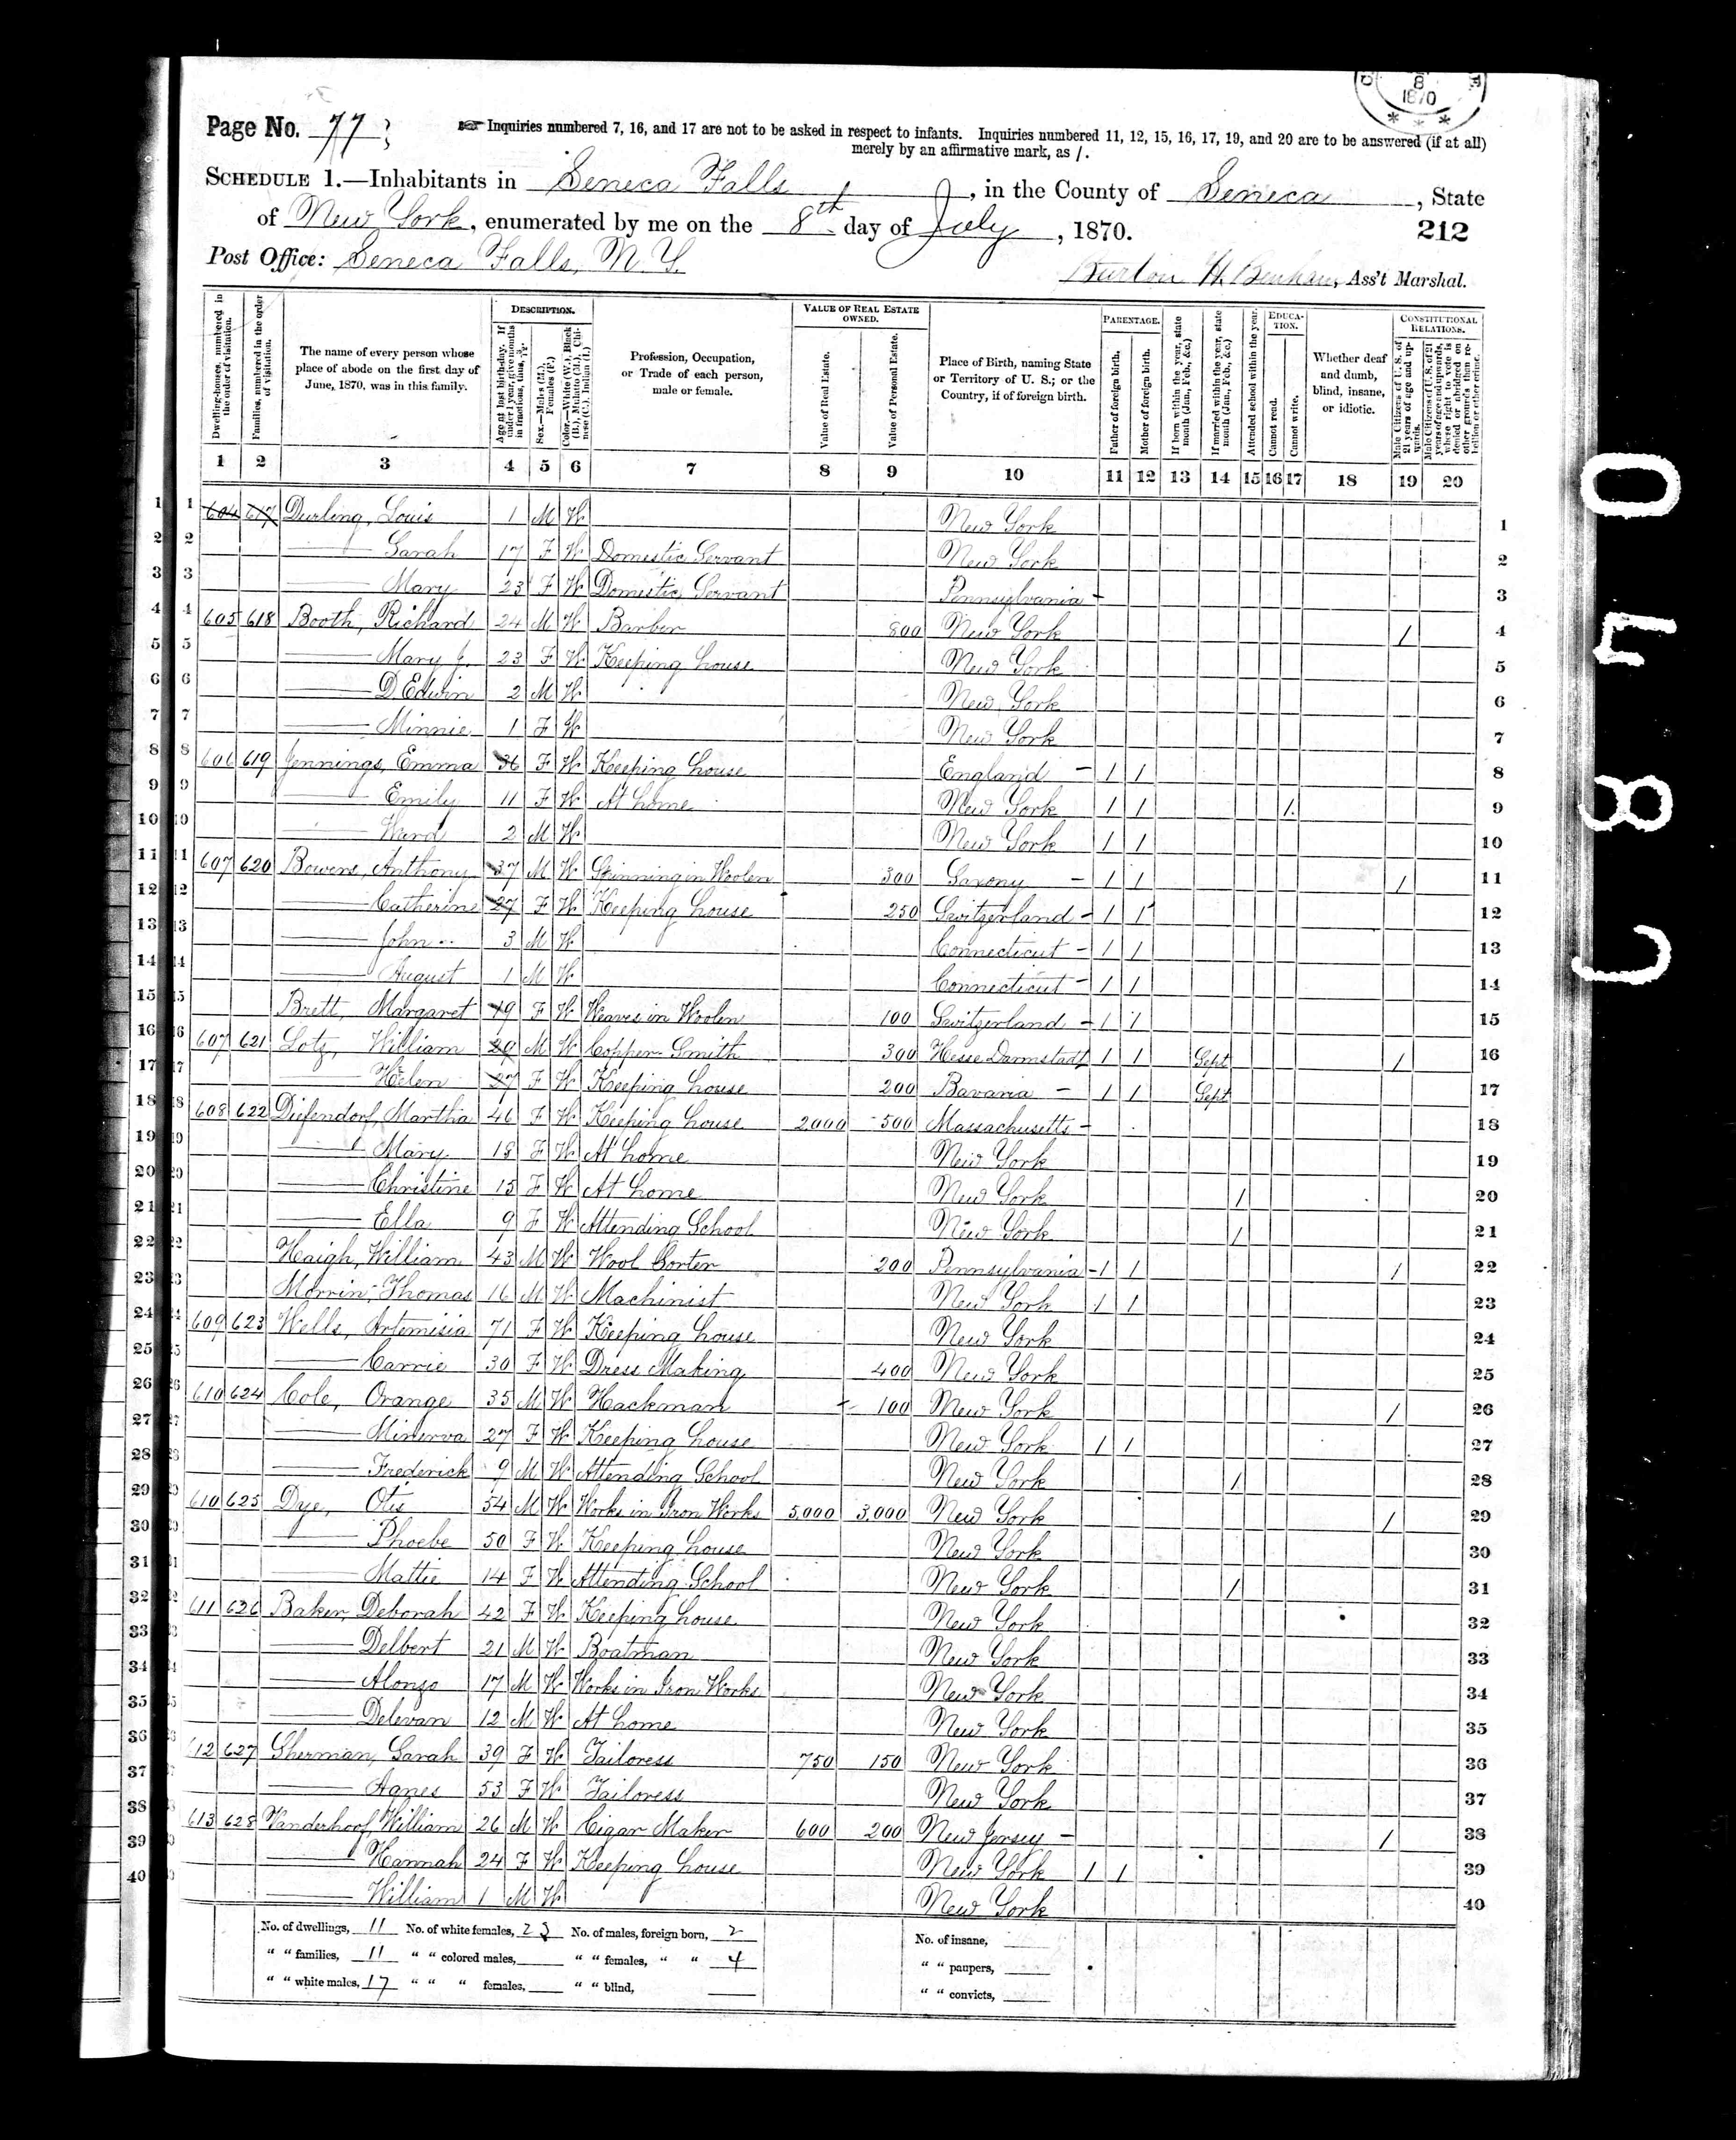 8
1870
* * *
Page No. 77
Inquiries numbered 7, 16, and 17 are not to be asked in respect to infants. Inquiries numbered 11, 12, 15, 16, 17, 19, and 20 are to be answered (if at all)
merely by an affirmative mark, as /.
SCHEDULE 1.—Inhabitants in Seneca Falls, in the County of Seneca, State
of New York, enumerated by me on the 8th day of July, 1870.
212
Post Office: Seneca Falls, N. Y.
Burton H. Benham, Ass't Marshal.
Dwelling-houses, numbered in the order of visitation.
Families, numbered in the order of visitation.
The name of every person whose place of abode on the first day of June, 1870, was in this family.
DESCRIPTION.
Age at last birth-day. If under 1 year, give months in fractions, thus, 3/12.
Sex.—Males (M.), Females (F.)
Color.—White (W.), Black (B.), Mulatto (M.), Chinese (C.), Indian (I.)
Profession, Occupation, or Trade of each person, male or female.
VALUE OF REAL ESTATE OWNED.
Value of Real Estate.
Value of Personal Estate.
Place of Birth, naming State or Territory of U. S.; or the Country, if of foreign birth.
PARENTAGE.
Father of foreign birth.
Mother of foreign birth.
If born within the year, state month (Jan., Feb., &c.)
If married within the year, state month (Jan., Feb., &c.)
Attended school within the year.
EDUCATION.
Cannot read.
Cannot write.
Whether deaf and dumb, blind, insane, or idiotic.
CONSTITUTIONAL RELATIONS.
Male Citizens of U. S. of 21 years of age and upwards.
Male Citizens of U. S. of 21 years of age and upwards, where right to vote is denied or abridged on other grounds than rebellion or other crime.
1 2 3 4 5 6 7 8 9 10 11 12 13 14 15 16 17 18 19 20
1 1 604 617 Durling, Louis 1 M W New York 1
2 2 Sarah 17 F W Domestic Servant New York 2
3 3 Mary 23 F W Domestic Servant Pennsylvania - 3
4 4 605 618 Booth, Richard 24 M W Barber 800 New York / 4
5 5 Mary J. 23 F W Keeping house New York 5
6 6 D. Edwin 2 M W New York 6
7 7 Minnie 1 F W New York 7
8 8 606 619 Jennings, Emma 36 F W Keeping house England - / / 8
9 9 Emily 11 F W At home New York / / / 9
10 10 Ward 2 M W New York / / 10
11 11 607 620 Bowers, Anthony 37 M W Spinning in Woolen 300 Saxony - / / / 11
12 12 Catherine 27 F W Keeping house 250 Switzerland - / / 12
13 13 John 3 M W Connecticut - / / 13
14 14 August 1 M W Connecticut - / / 14
15 15 Brett, Margaret 19 F W Weaves in Woolen 100 Switzerland - / / 15
16 16 607 621 Lotz, William 20 M W Copper Smith 300 Hesse Darmstadt / / Sept / 16
17 17 Helen 27 F W Keeping house 200 Bavaria - / / Sept 17
18 18 608 622 Diefendorf, Martha 46 F W Keeping house 2000 500 Massachusetts - 18
19 19 Mary 18 F W At home New York 19
20 20 Christine 15 F W At home New York / 20
21 21 Ella 9 F W Attending School New York / 21
22 22 Haigh, William 43 M W Wool Sorter 200 Pennsylvania - / / / 22
23 23 Morrin, Thomas 16 M W Machinist New York / / 23
24 24 609 623 Wells, Artemisia 71 F W Keeping house New York 24
25 25 Carrie 30 F W Dress Making 400 New York 25
26 26 610 624 Cole, Orange 35 M W Hackman 100 New York / 26
27 27 Minerva 27 F W Keeping house New York / / 27
28 28 Frederick 9 M W Attending School New York / 28
29 29 610 625 Dye, Otis 54 M W Works in Iron Works 5,000 3,000 New York / 29
30 30 Phoebe 50 F W Keeping house New York 30
31 31 Mattie 14 F W Attending School New York / 31
32 611 626 Baker, Deborah 42 F W Keeping house New York 32
33 Delbert 21 M W Boatman New York 33
34 Alonzo 17 M W Works in Iron Works New York 34
35 Delevan 12 M W At home New York 35
36 612 627 Sherman, Sarah 39 F W Tailoress 750 150 New York 36
37 Agnes 53 F W Tailoress New York 37
38 613 628 Vanderhoof, William 26 M W Cigar Maker 600 200 New Jersey - / 38
39 Hannah 24 F W Keeping house New York / / 39
40 William 1 M W New York 40
No. of dwellings, 11 No. of white females, 23 No. of males, foreign born, 2 No. of insane,
" " families, 11 " " colored males, " " females, " " 4 " " paupers,
" " white males, 17 " " " females, " " blind, " " convicts,